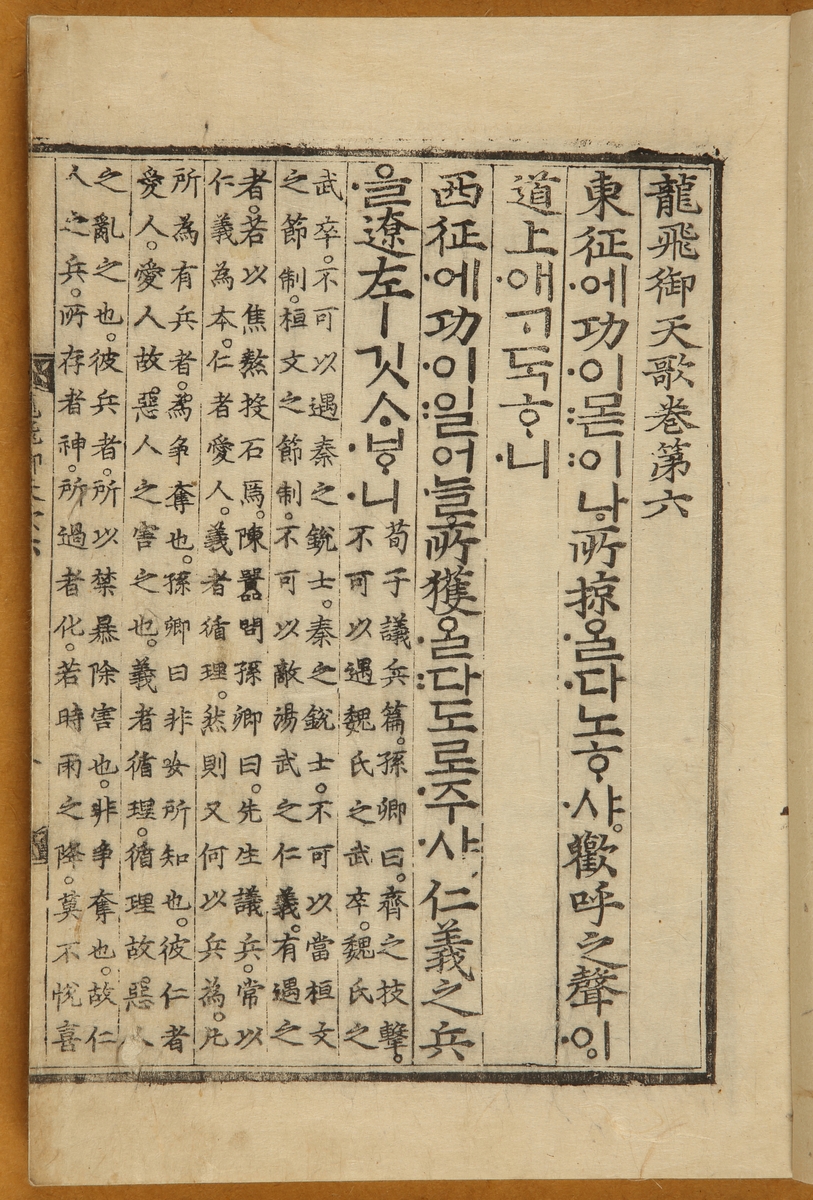 龍飛御天歌卷第六
東征에功이몯이나。所掠ᄋᆞᆯ다노ᄒᆞ샤。歡呼之聲이
道上애ᄀᆞᄃᆞᆨᄒᆞ니
西征에功이일어늘。所獲ᄋᆞᆯ다도로주샤。仁義之兵
ᄋᆞᆯ遼左ㅣ깃ᄉᆞᄫᆞ니
荀子議兵篇。孫卿曰。齊之技擊。
不可以遇魏氏之武卒。魏氏之
武卒。不可以遇秦之銳士。秦之銳士。不可以當桓文
之節制。桓文之節制。不可以敵湯武之仁義。有遇之
者。若以焦熬投石焉。陳囂問孫卿曰。先生議兵。常以
仁義為本。仁者愛人。義者循理。然則又何以兵為。凡
所為有兵者。為爭奪也。孫卿曰非女所知也。彼仁者
愛人。愛人故。惡人之害之也。義者循理。循理故。惡人
之亂之也。彼兵者。所以禁暴除害也。非爭奪也。故仁
人之兵。所存者神。所過者化。若時雨之降。莫不悅喜